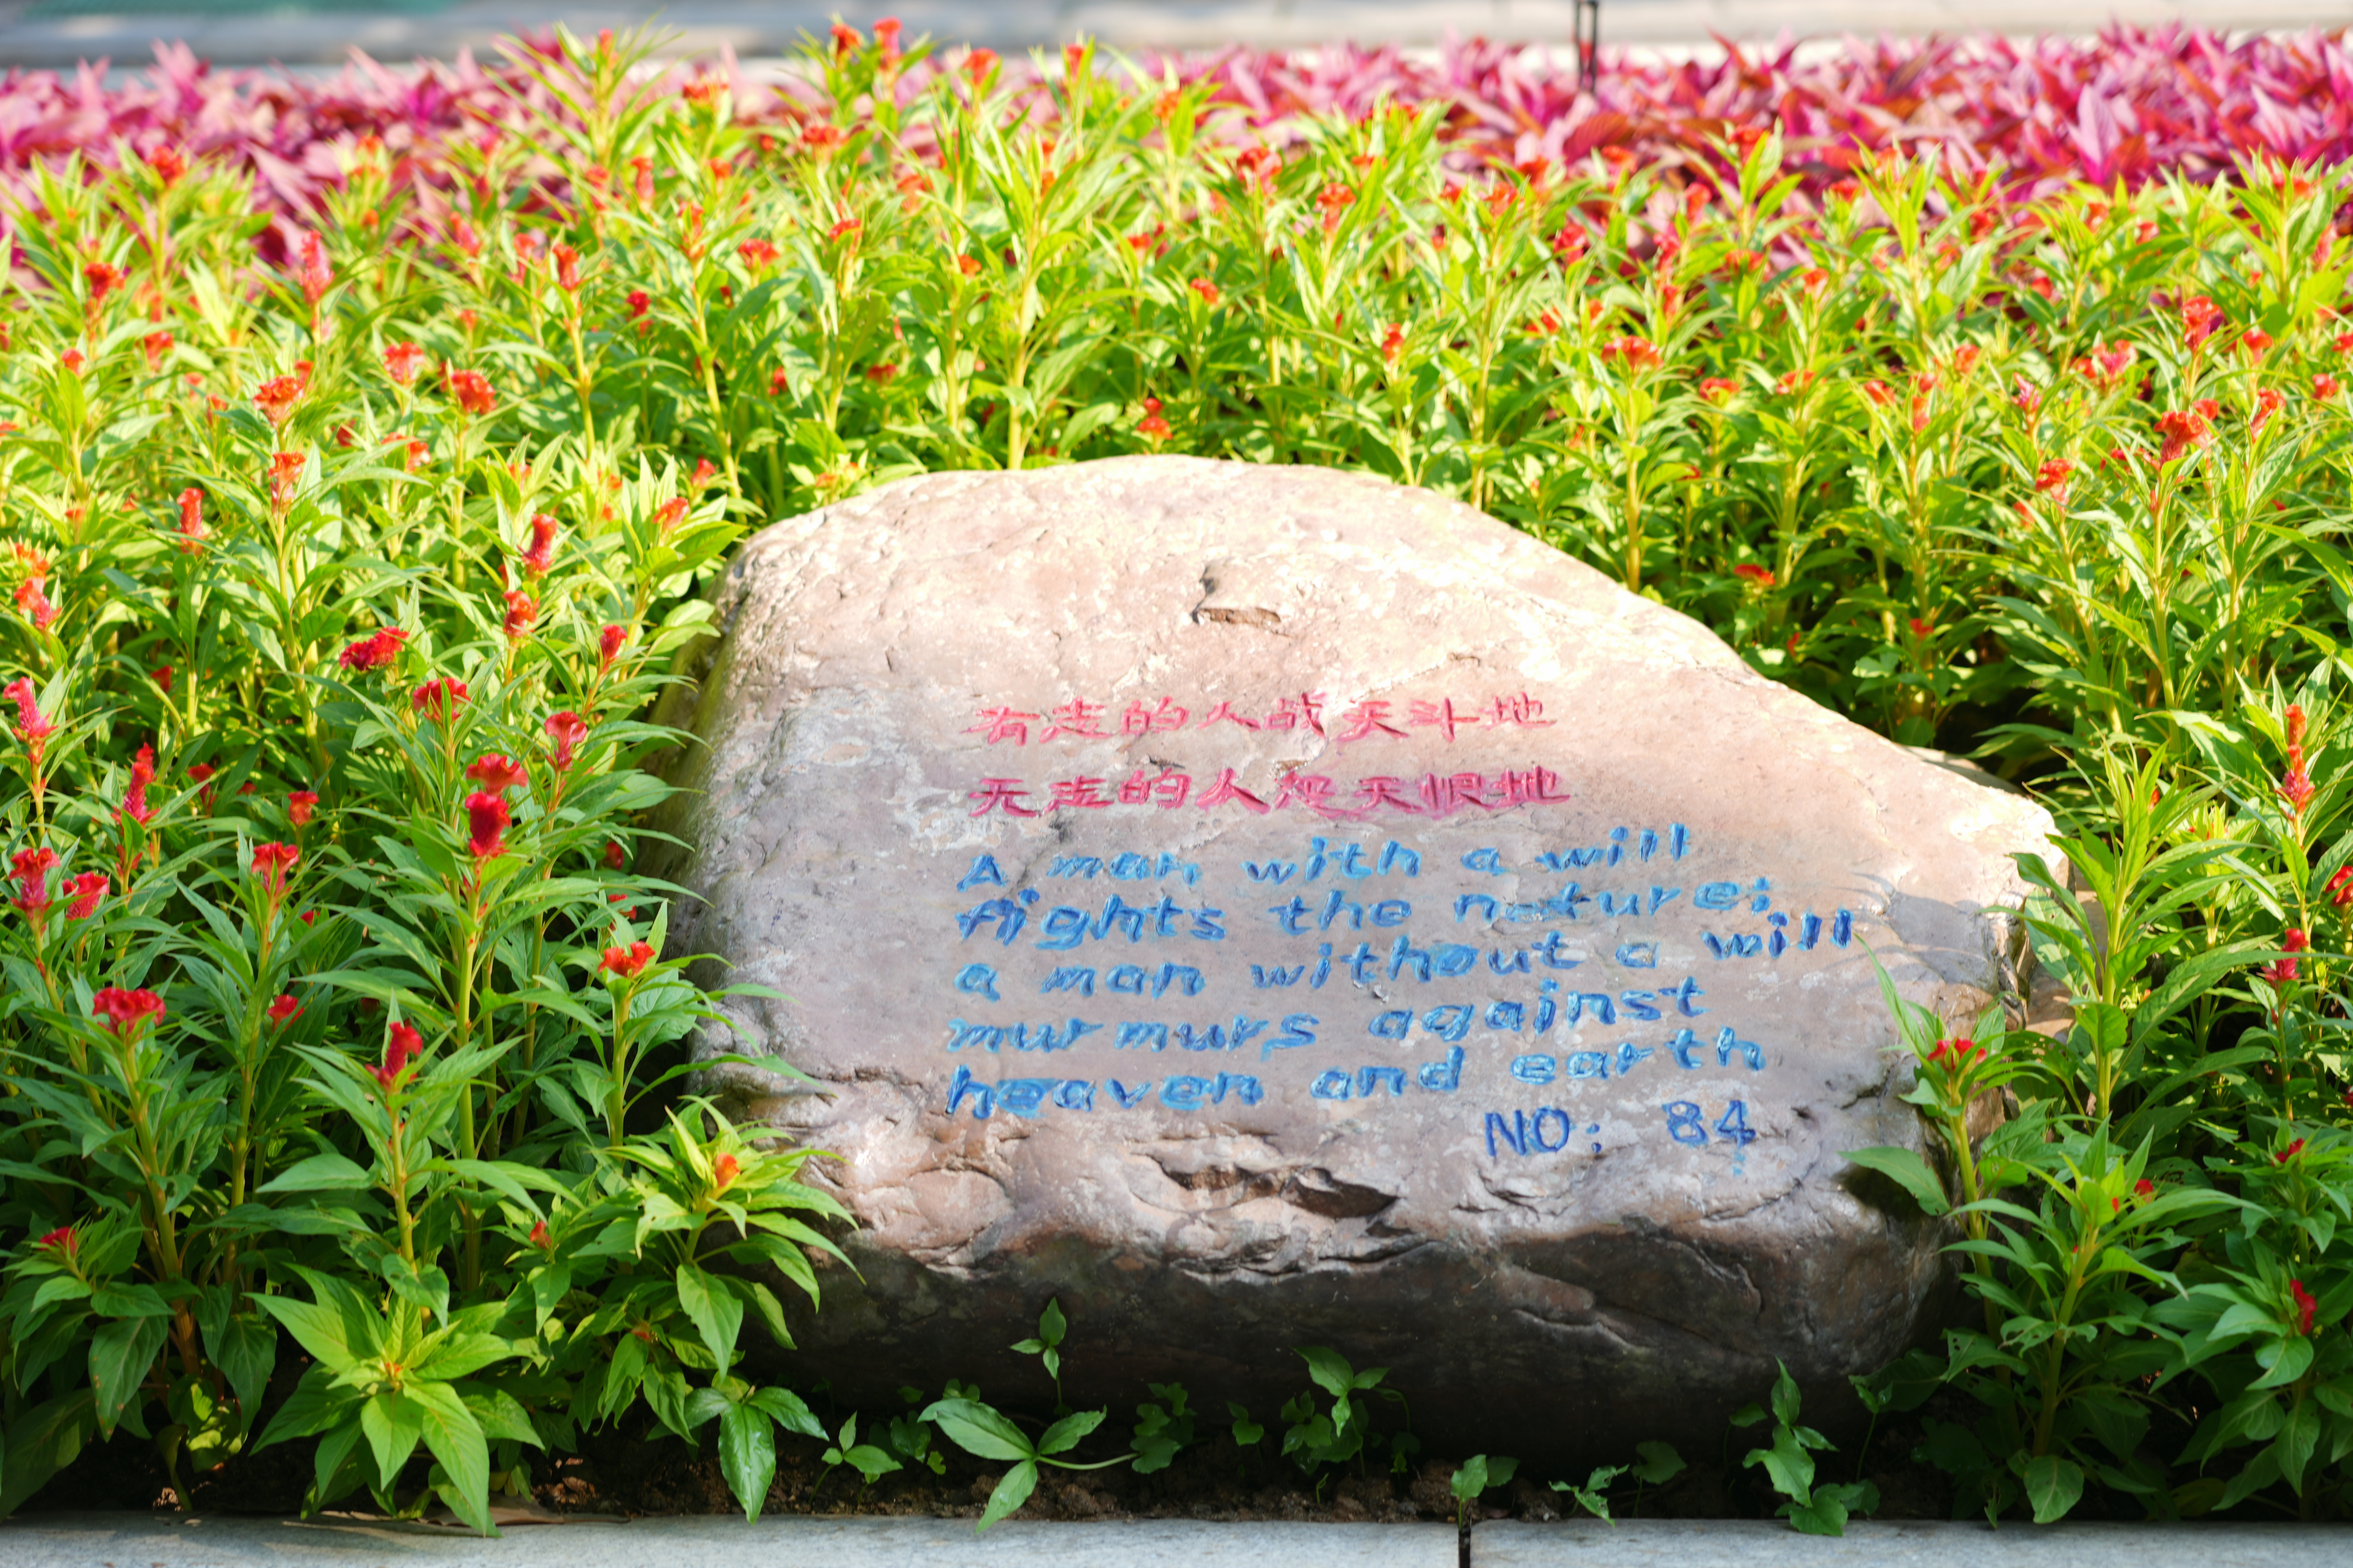 有志的人战天斗地
无志的人怨天恨地
A man with a will
fights the nature;
a man without a will
murmurs against
heaven and earth
NO: 84